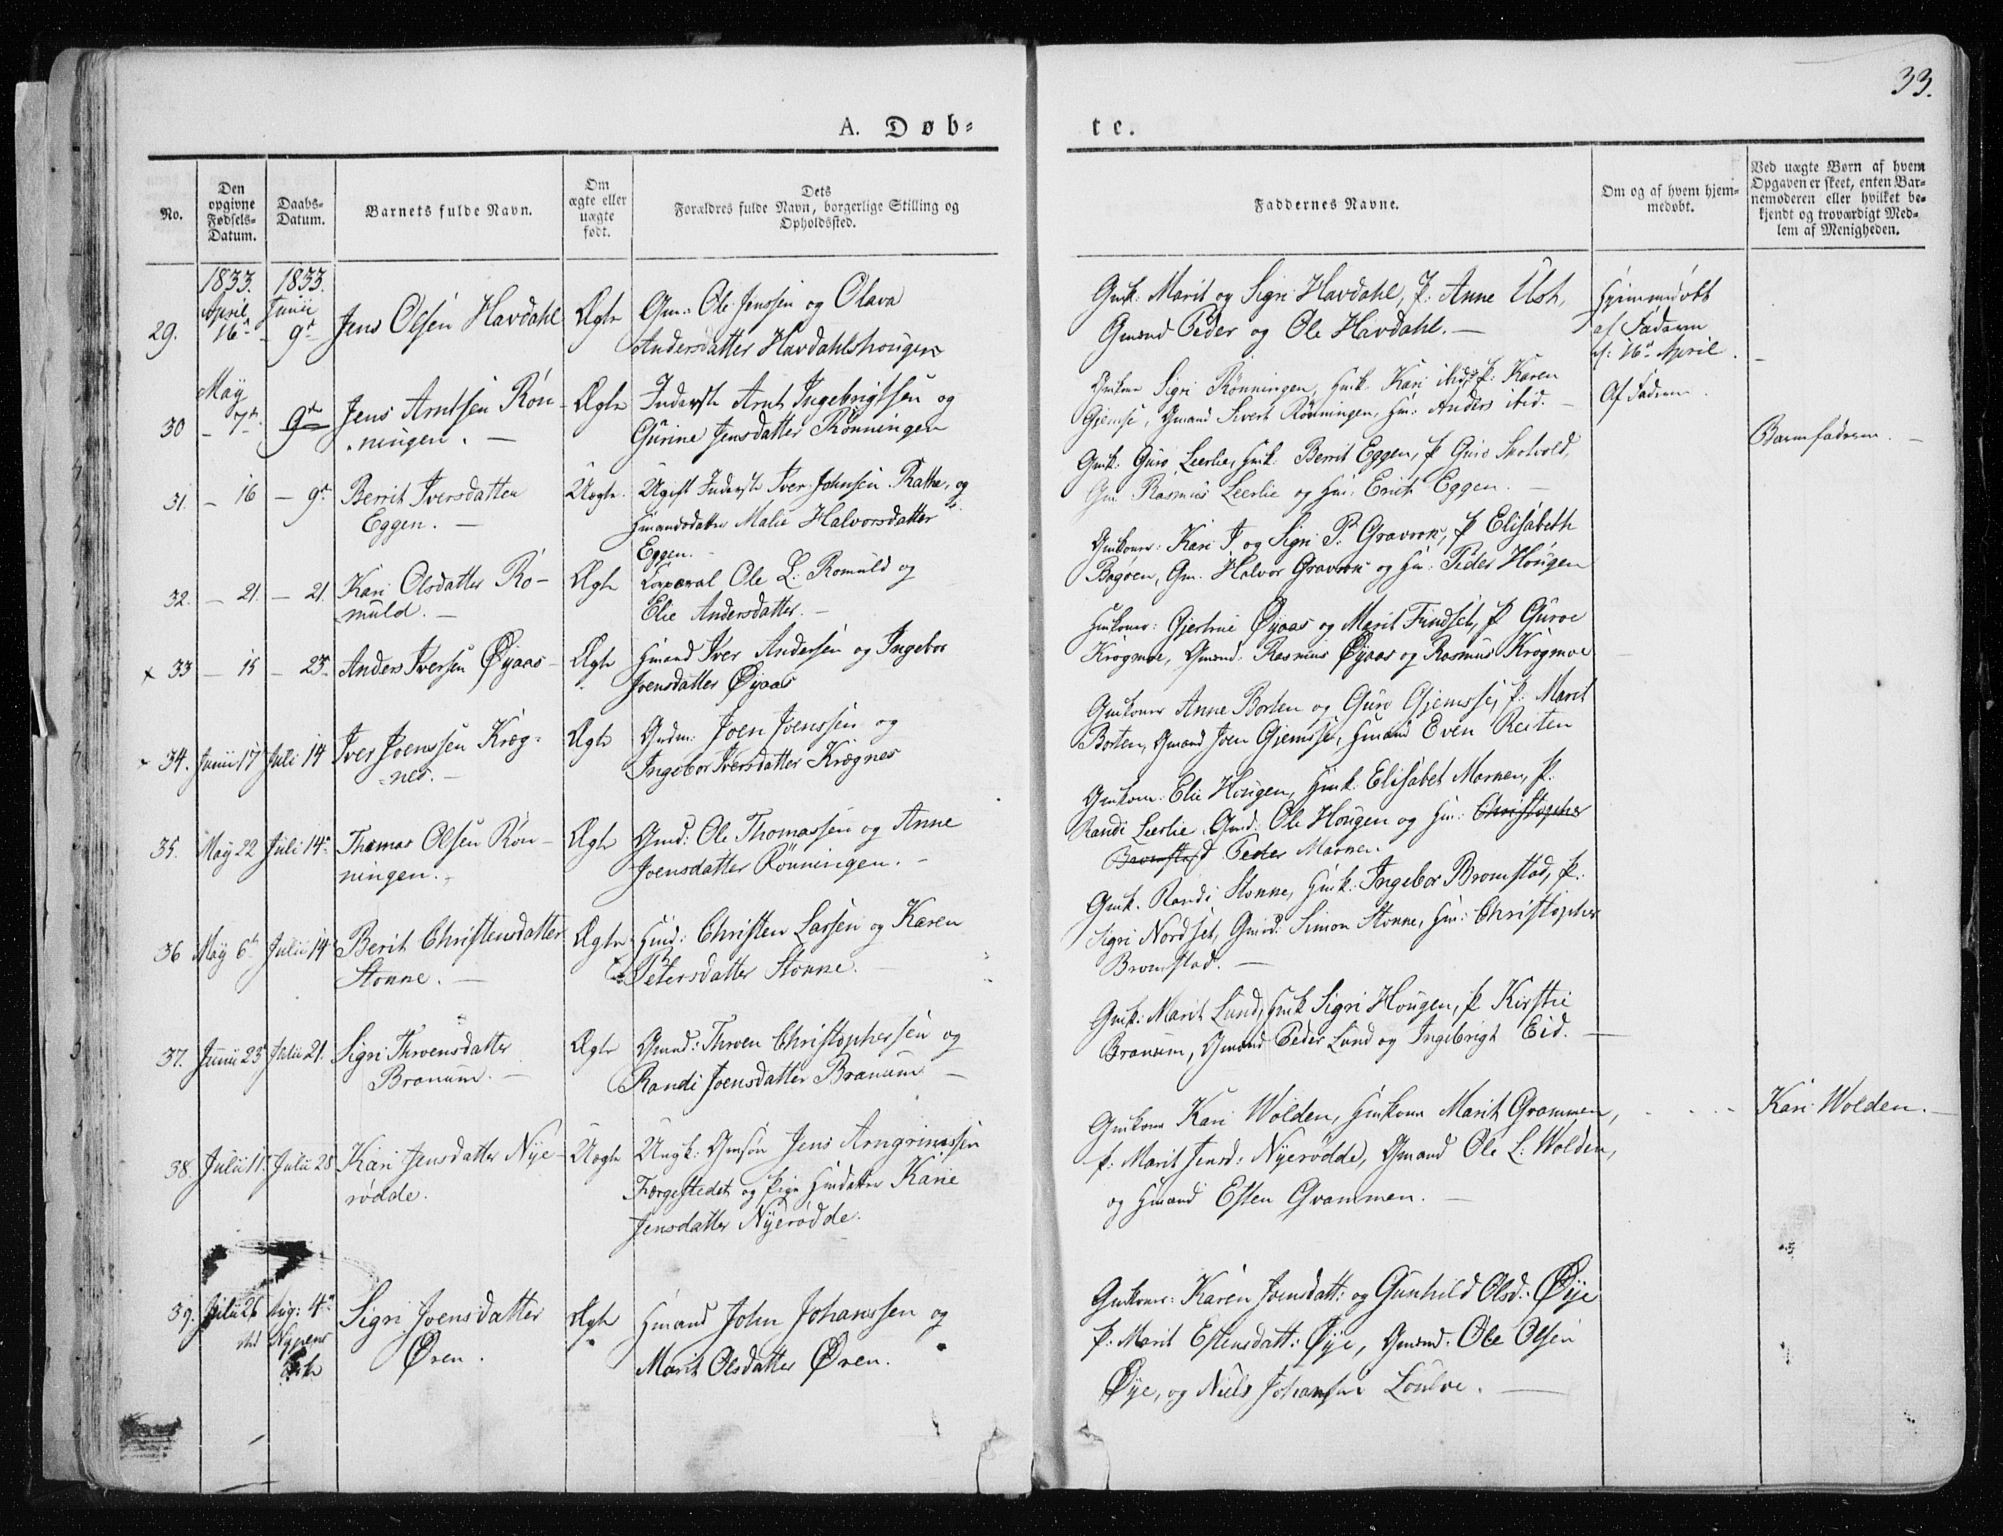 33.
A. Døb-
te.
No.
Den opgivne Fødsels-Datum.
Daabs-Datum.
Barnets fulde Navn.
Om ægte eller uægte født.
Dets Forældres fulde Navn, borgerlige Stilling og Opholdssted.
Faddernes Navne.
Om og af hvem hjemmedøbt.
Ved uægte Børn af hvem Opgaven er skeet, enten Barnemoderen eller hvilket bekjendt og troværdigt Medlem af Menigheden.
1833. 1833.
April Junii
29. 16de 9de Jens Olsen Havdahl Ægte Gm: Ole Jenssen og Olava
Andersdatter Havdahlshougen
Gmk: Marit og Sigri Havdahl, P. Anne Ust,
Gmænd Peder og Ole Havdahl. —
Hjemmedøbt
af Faderen
d: 16de April.
May
30 — 7de 9de Jens Arntsen Røn-
ningen. — Ægte Inderste Arnt Ingebrigtsen og
Gurine Jensdatter Rønningen
Sigri Rønningen, Hmk. Kari ibid, P: Karen
Gjemse, Gmand Sivert Rønningen, Hm: Anders ibid. —
Af Faderen.
31. — 16 — 9de Berrit Iversdatter
Eggen. — Uægte. Ugift Inderste Iver Johnsen Rathe, og
Hmandsdatter Malie Halvorsdatter
Eggen. —
Gmk. Guro Leerlie, Hmk. Berrit Eggen, P Guro Skotvold,
Gm. Rasmus Leerlie og Hm: Erich Eggen. —
Barnefaderen. —
32. — 21. — 21. Kari Olsdatter Ro-
muld. — Ægte Corporal Ole L. Romuld og
Elie Andersdatter. —
Gmkoner: Kari I. og Sigri P. Gravrok, P Elisabeth
Bagøen, Gm. Halvor Gravrok og Hm: Peder Hougen
× 33 — 15 — 23. Anders Iversen Øyaas — Ægte Hmand Iver Andersen og Ingebor
Joensdatter Øyaas
Hmkoner: Gjertrue Øyaas og Marit Fundset, P Guroe
Krogmoe, Gmænd: Rasmus Øyaas og Rasmus Krogmoe
× 34. Junii 17 Juli 14 Iver Joenssen Kræg-
nes. — Ægte Joen Joenssen og
Ingebor Iversdatter Krægnes
Gmkoner Anne Borten og Guro Gjemsse, P: Marit
Borten, Gmand Joen Gjemsse, Hmand Even Reiten
35. May 22 Juli 14de Thomas Olsen Røn-
ningen. — Ægte Gmd: Ole Thomassen og Anne
Joensdatter Rønningen. —
Gmkone: Elie Hougen, Hmk: Elisabet Marken, P.
Randi Leerlie. Gmd: Ole Hougen og Hm: Christopher
Bromstad Peder Marken.
36 May 6te Julii 14 Berit Christensdatter
Stonne. — Ægte Hmd: Christen Larsen og Karen
Petersdatter Stonne. —
Gmk. Randi Stonne, Hmk: Ingebor Bromstad, P:
Sigri Nordset, Gmd: Simon Stonne, Hm: Christopher
Bromstad. —
37. Junii 23 Julii 21. Sigri Throensdatter
Branum. — Ægte Gmnd: Throen Christophersen og
Randi Joensdatter Branum —
Gmk: Marit Lund, Hmk Sigri Hougen, P Kirstie
Branum, Gmænd Peder Lund og Ingebrigt Eid. —
38. Julii 11. Julii 28 Kari Jensdatter Nye-
rødde. Uægte Ungk: Gmsøn Jens Arngrimssen
Færgestedet og Pige Hmdatter Karie
Jensdatter Nyerødde.
Gmkone Kari Wolden, Hmkone Marit Grammen,
P: Marit Jensd: Nyerødde, Gmand Ole L: Wolden,
og Hmand Esten Grammen. —
Kari Wolden. —
39. Julii 26 Aug: 4de Sigri Joensdatter
Øren. Ægte Hmand John Johanssen og
Marit Olsdatter Øren.
Gmkoner: Karen Joensdatt: og Gunhild Olsd: Øye
P: Marit Estensdatt: Øye, Gmænd: Ole Olsen
Øye, og Niels Johansen —